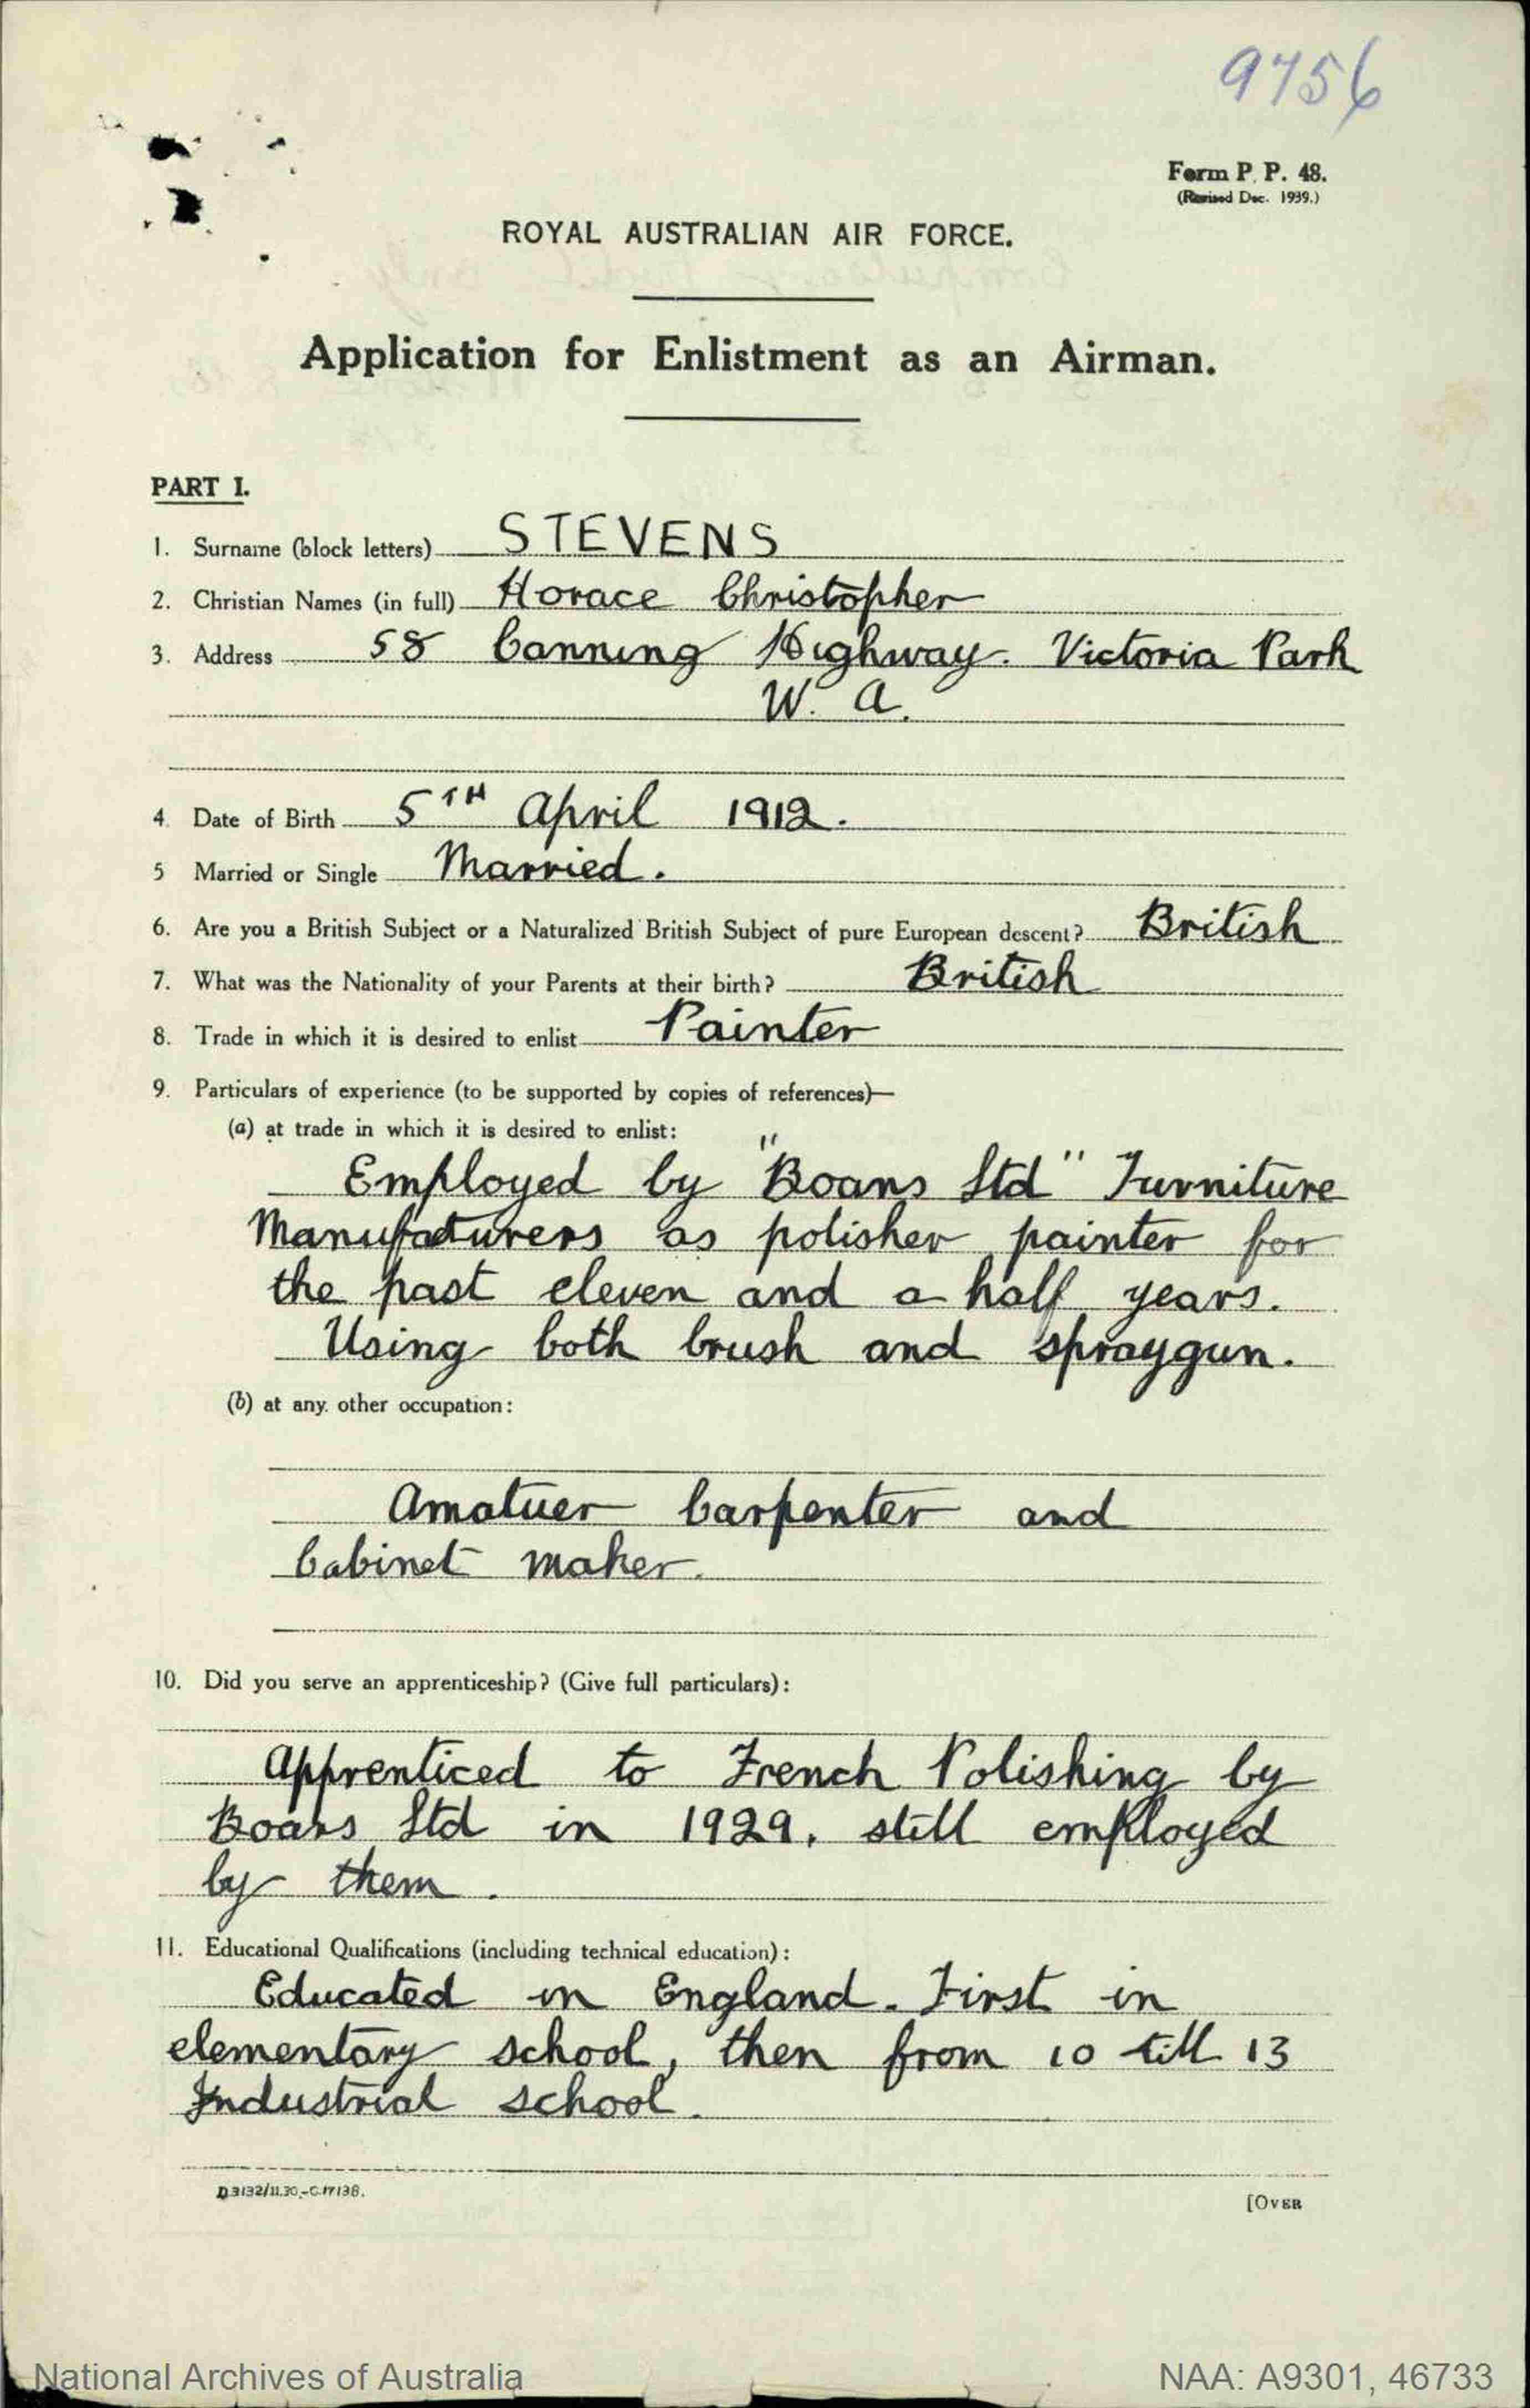 9756
Form P. P. 48.
(Revised Dec. 1939.)
ROYAL AUSTRALIAN AIR FORCE.
Application for Enlistment as an Airman.
PART I.
1. Surname (block letters) STEVENS
2. Christian Names (in full) Horace Christopher
3. Address 58 Canning Highway. Victoria Park
W. A.
4. Date of Birth 5TH April 1912.
5 Married or Single Married.
6. Are you a British Subject or a Naturalized British Subject of pure European descent? British
7. What was the Nationality of your Parents at their birth? British
8. Trade in which it is desired to enlist Painter
9. Particulars of experience (to be supported by copies of references)—
(a) at trade in which it is desired to enlist:
Employed by "Boans Ltd" Furniture
Manufacturers as polisher painter for
the past eleven and a half years.
Using both brush and spraygun.
(b) at any other occupation:
Amatuer Carpenter and
Cabinet maker.
10. Did you serve an apprenticeship? (Give full particulars):
Apprenticed to French Polishing by
Boans Ltd in 1929, still employed
by them.
11. Educational Qualifications (including technical education):
Educated in England. First in
elementary school, then from 10 till 13
Industrial school.
D.3132/11.39.–C.17138.
[OVER
National Archives of Australia
NAA: A9301, 46733